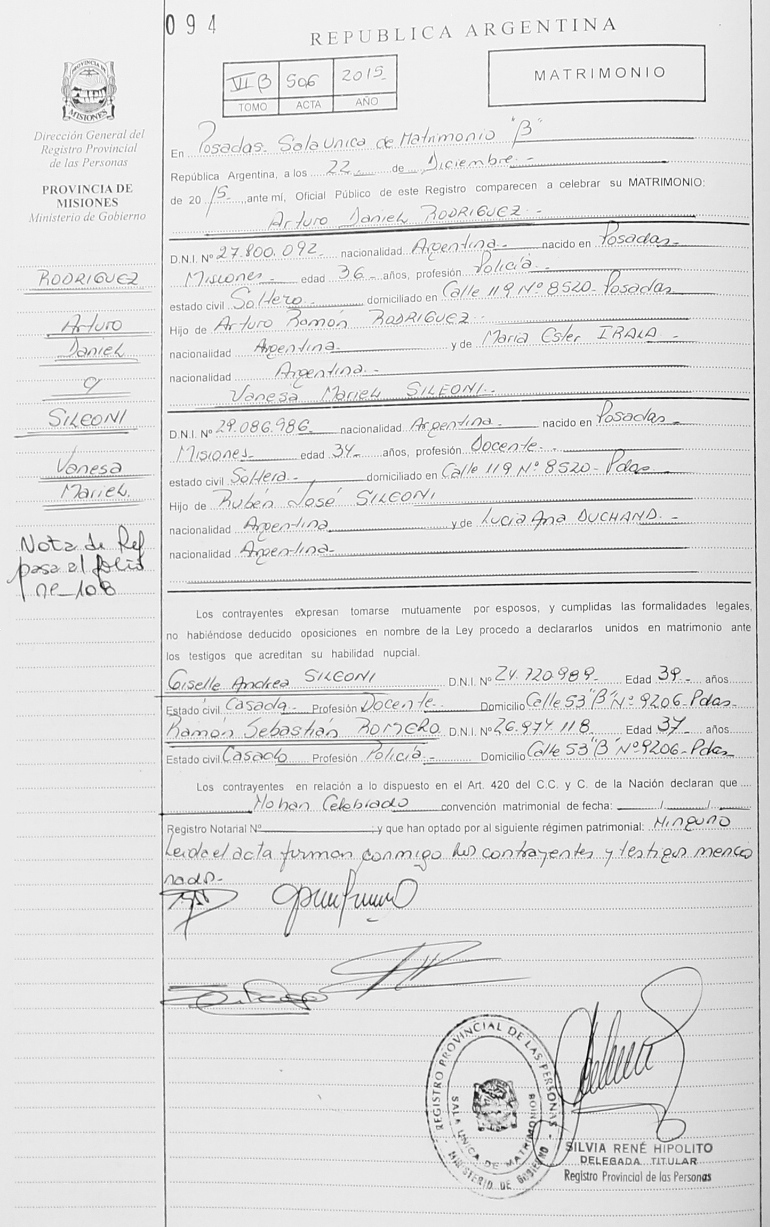 094
REPUBLICA ARGENTINA
VII B 506 2015
TOMO ACTA AÑO
MATRIMONIO
PROVINCIA DE
MISIONES
Dirección General del
Registro Provincial
de las Personas
PROVINCIA DE
MISIONES
Ministerio de Gobierno
RODRIGUEZ
Arturo
Daniel
y
SILEONI
Vanesa
Mariel.
Nota de Ref
pasa al folio
nº 108
En Posadas. Sala Unica de Matrimonio "B"
República Argentina, a los 22 de Diciembre.-
de 2015- ante mi, Oficial Público de este Registro comparecen a celebrar su MATRIMONIO:
Arturo Daniel RODRIGUEZ.-
D.N.I. Nº 27.800.092.- nacionalidad Argentina- nacido en Posadas-
Misiones- edad 36- años, profesión Policía-
estado civil Soltero- domiciliado en Calle 119 Nº 8520- Posadas
Hijo de Arturo Ramón RODRIGUEZ-
nacionalidad Argentina- y de Maria Ester IRALA-
nacionalidad Argentina.-
Vanesa Mariel SILEONI.-
D.N.I. Nº 29.086.986- nacionalidad Argentina- nacido en Posadas-
Misiones- edad 34- años, profesión Docente-
estado civil Soltera- domiciliado en Calle 119 Nº 8520- Pdas-
Hijo de Rubén José SILEONI
nacionalidad Argentina y de Lucia Ana DUCHAND.-
nacionalidad Argentina-
Los contrayentes expresan tomarse mutuamente por esposos, y cumplidas las formalidades legales,
no habiéndose deducido oposiciones en nombre de la Ley procedo a declararlos unidos en matrimonio ante
los testigos que acreditan su habilidad nupcial.
Giselle Andrea SILEONI D.N.I. Nº 24.720.989- Edad 39- años
Estado civil Casada- Profesión Docente- Domicilio Calle 53 "B" Nº 9206-Pdas-
Ramón Sebastián ROMERO D.N.I. Nº 26.974.118 Edad 37 años
Estado civil Casado Profesión Policía- Domicilio Calle 53 "B" Nº 9206-Pdas
Los contrayentes en relación a lo dispuesto en el Art. 420 del C.C. y C. de la Nación declaran que
No han Celebrado convención matrimonial de fecha: / /
Registro Notarial Nº ; y que han optado por al siguiente régimen patrimonial: Ninguno
Leida el acta firman conmigo los contrayentes y testigos mencio
nados-
REGISTRO PROVINCIAL DE LAS PERSONAS
SALA UNICA DE MATRIMONIOS
- MINISTERIO DE GOBIERNO -
SILVIA RENÉ HIPOLITO
DELEGADA TITULAR
Registro Provincial de las Personas